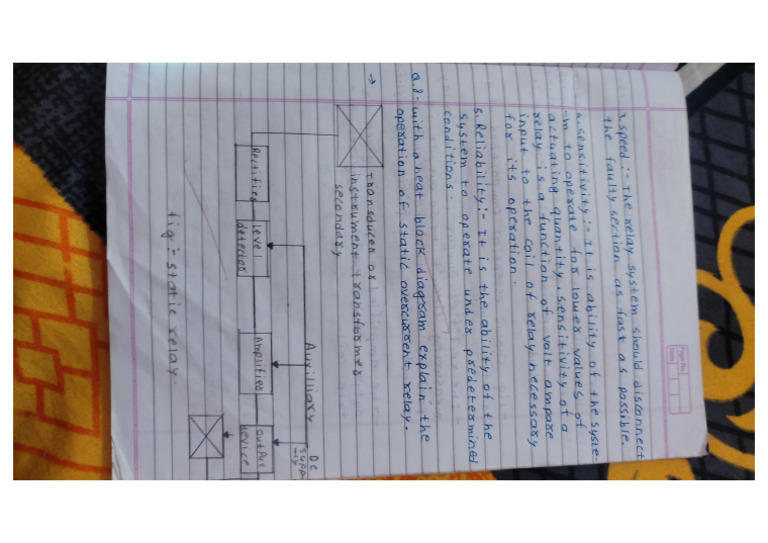 Page No.
Date
3. speed :- The relay system should disconnect
the faulty section as fast as possible.
4. sensitivity :- It is ability of the syste-
-m to operate for lower values of
actuating quantity. sensitivity of a
relay is a function of volt ampare
input to the coil of relay necessary
for its operation.
5. Reliability:- It is the ability of the
system to operate under predetermined
conditions.
Q.2- with a neat block diagram explain the
operation of static overcurrent relay.
→
Transducer or
instrument transformer
secondary
Auxilliary
Dc
supp
-ly
Rectifier
Level
detector
Amplifier
output
Device
fig:- static relay.